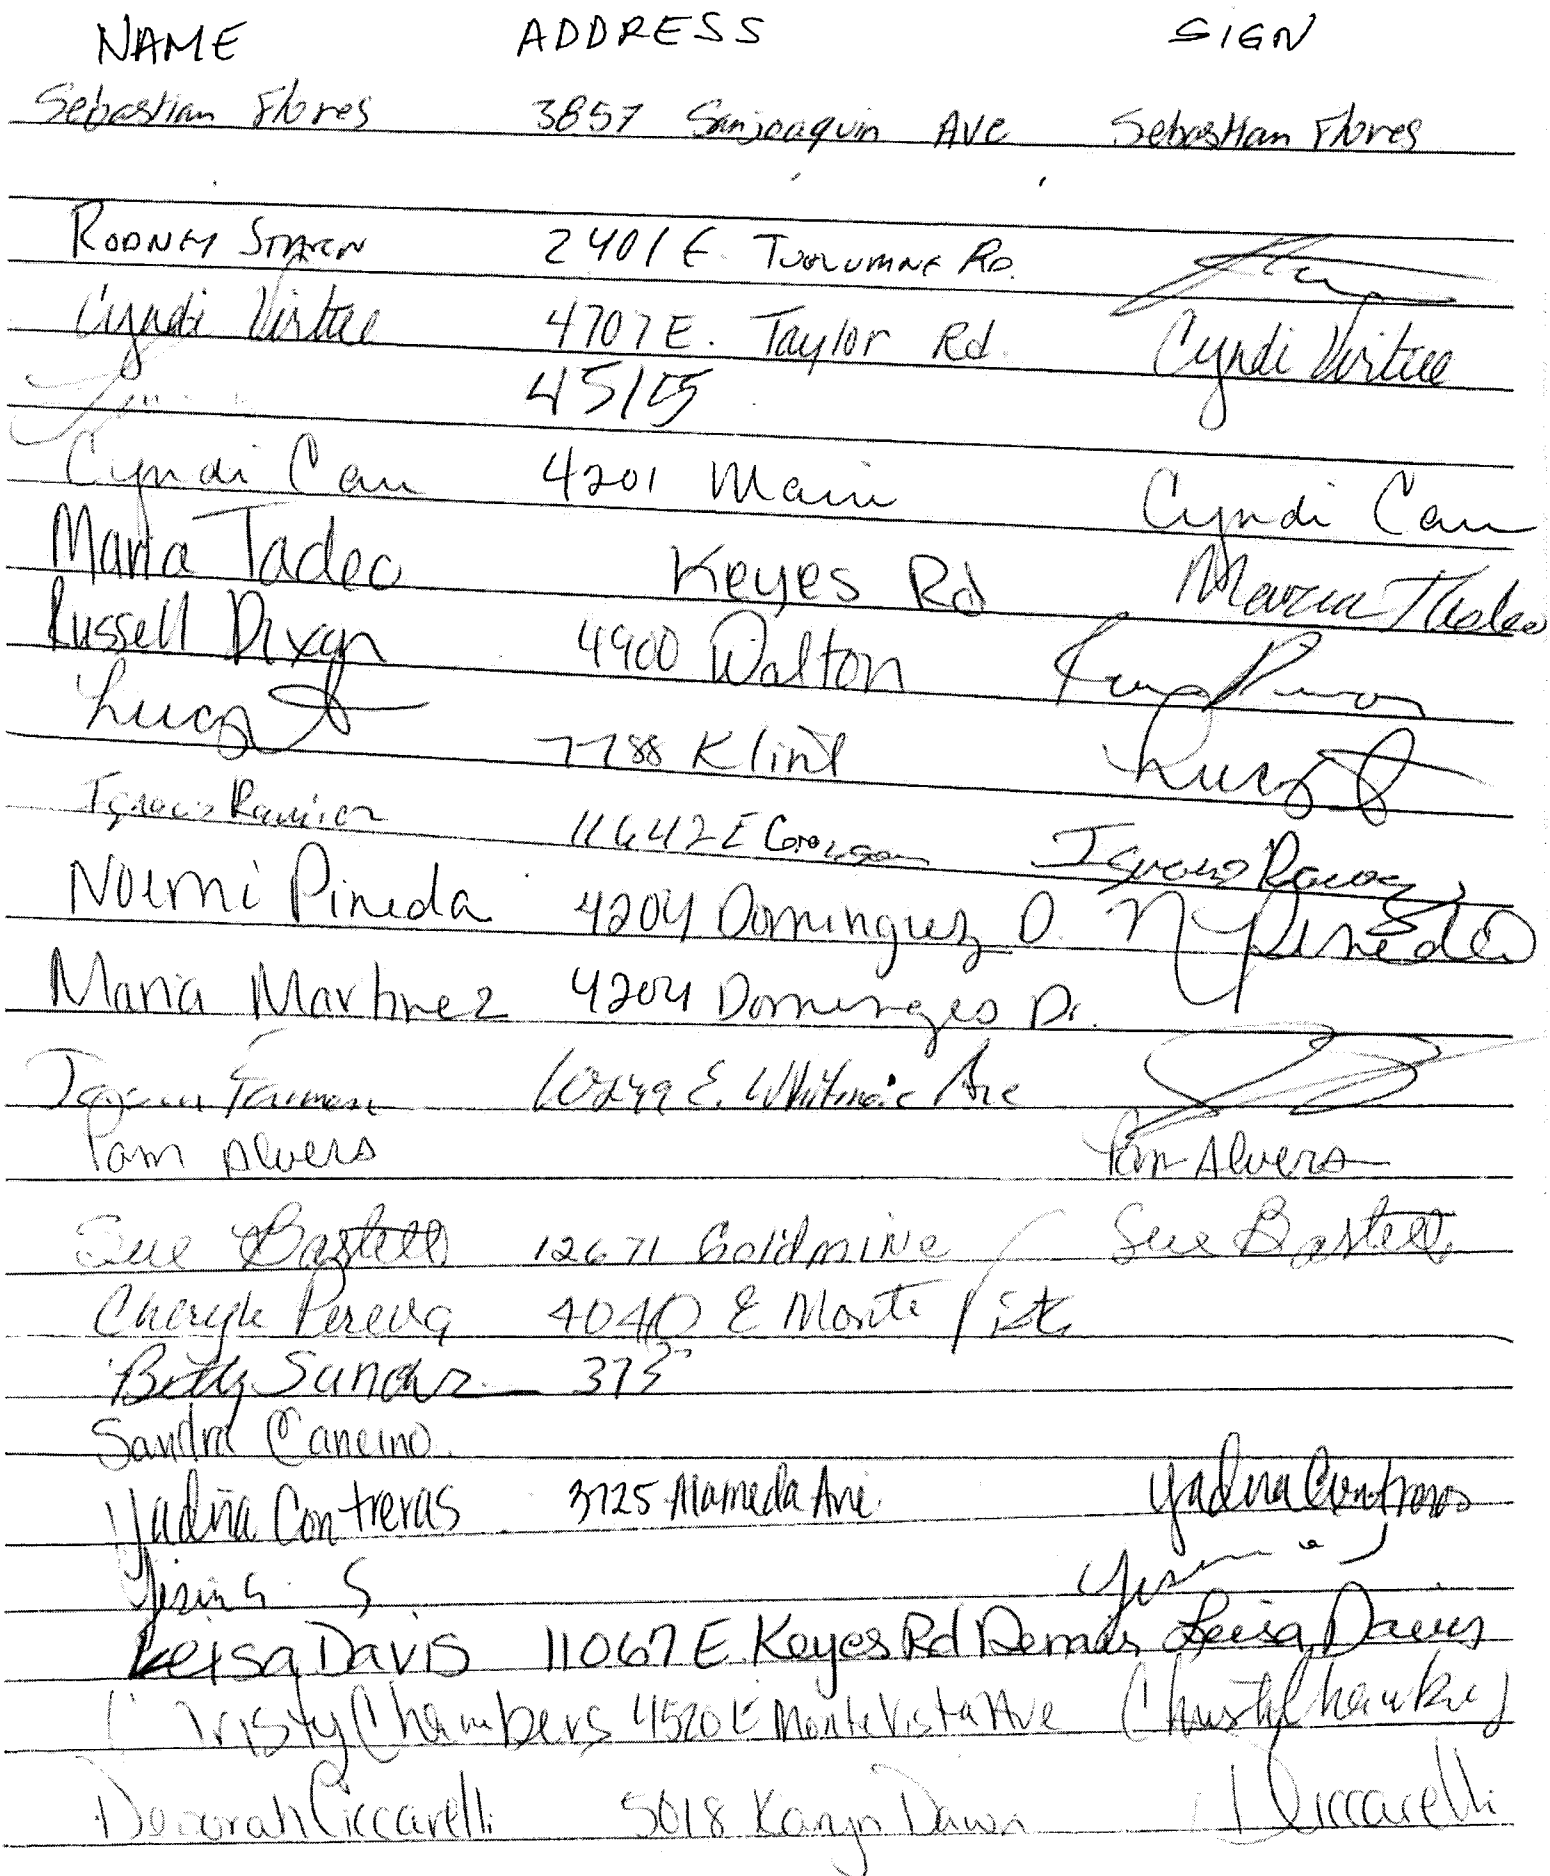 NAME ADDRESS SIGN
Sebastian Flores 3857 Sanjoaquin AVE Sebastian Flores
RODNEY 2401 E. TUOLUMNE RD.
Cyndi Virtue 4707 E. Taylor Rd. Cyndi Virtue
4515
Cyndi Cau 4201 Main Cyndi Cau
Maria Tadeo Keyes Rd Maria Tadeo
Russell Dixon 4900 Walton
Lucy 7788 Klint Lucy
Ignacio Ramirez 11642 E Ignacio
Noemi Pineda 4204 Dominguez D. N Pineda
Maria Martinez 4204 Dominges Dr.
E. Ave
Pam Alvers Pam Alvers
Sue Bastell 12671 Goldmine Sue Bastell
Cheryle Pereira 4040 E Monte Vista
Betty 373
Sandra Cancino
Yadira Contreras 3725 Alameda Ave. Yadira Contreras
S
Leisa Davis 11067 E. Keyes Rd Denair Leisa Davis
Christy Chambers 4520 E Monte Vista Ave Christy Chambers
Deborah Ciccarelli 5018 Karyn Dawn D Ciccarelli